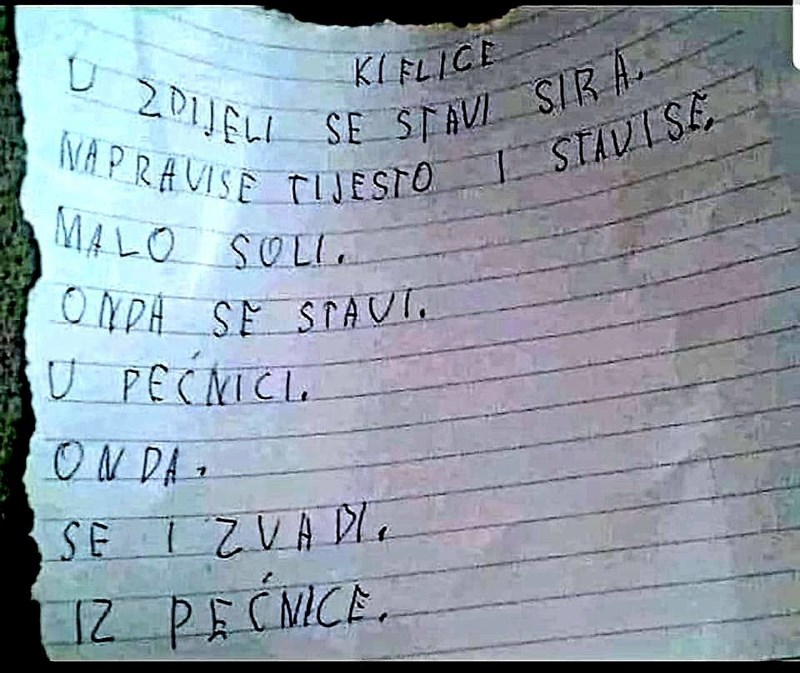 KIFLICE
U ZDIJELI SE STAVI SIRA.
NAPRAVISE TIJESTO I STAVISE.
MALO SOLI.
ONDA SE STAVI.
U PEĆNICI.
ONDA.
SE IZVADI.
IZ PEĆNICE.